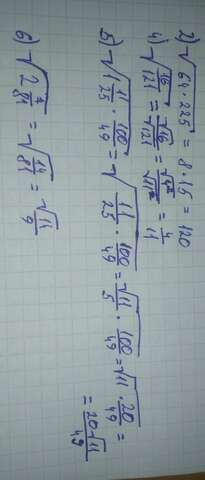 2) √64·225 = 8·15 = 120
4) √16/121 = √16/√121 = √4²/√11² = 4/11
5) √1 11/25 · 100/49 = √11/25 · 100/49 = √11/5 · 100/49 = √11 · 20/49 =
= 20√11/49
6) √2 7/81 = √14/81 = √11/9